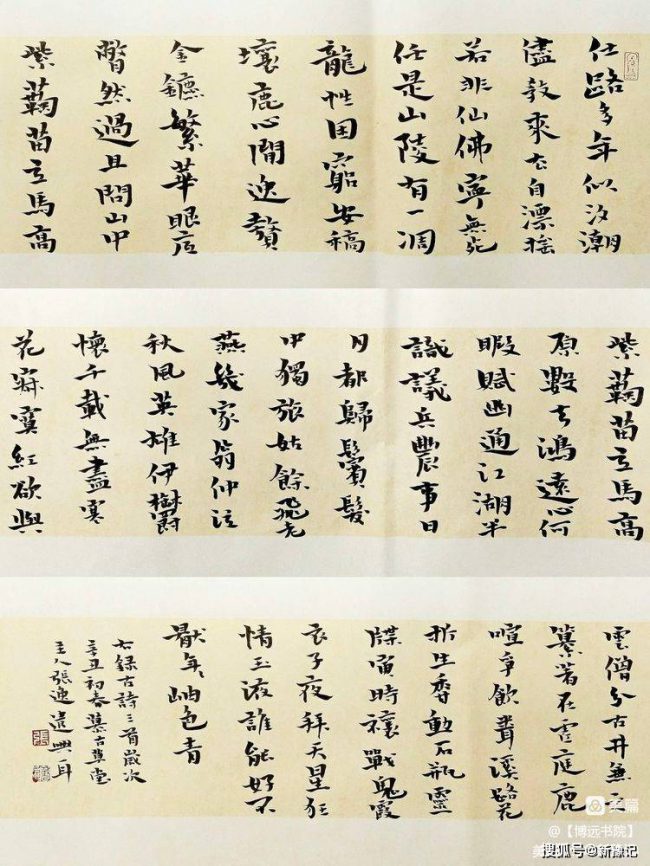 仕路多年似汐潮
儘教來去自漂搖
若非仙佛寧無死
任是山陵有一凋
龍性困窮安稿
壤鹿心閒逸贅
金鑣繁華眼底
瞥然過且問山中
紫蘜苗立馬高
紫蘜苗立馬高
原數去鴻遠心何
暇賦幽通江湖半
識議兵農事日
月都歸鬢髮
中獨旅姑餘飛老
燕幾家翁仲泣
秋風英雄伊鬱
懷千載無盡寒
花寂寞紅欲與
雲僧分古井兼
篆著在雲庭鹿
喧爭飲聾溪路花
折生香動石瓶靈
牒寅時禳戰鬼霞
衣子夜拜天星狂
情玉液誰能好不
厭年年岫色青
右錄古詩三首歲次
辛丑初春古草堂
主人張逸遣興耳
美篇
@【博远书院】
搜狐号@新豫记